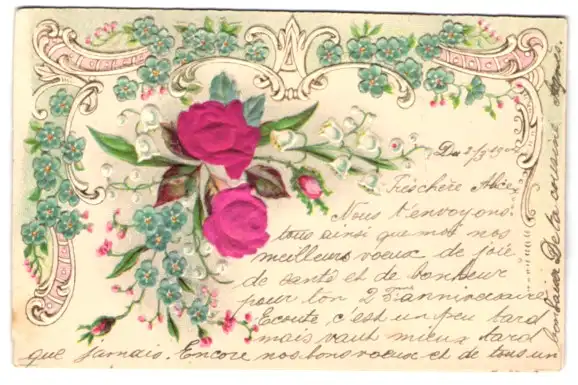 A
Du 2/9 1902
Très chère Alice,
Nous t'envoyons
tous ainsi que moi nos
meilleurs voeux de joie
de santé et de bonheur
pour ton 2 anniversaire
Ecoute, c'est un peu tard
mais vaut mieux tard
que jamais. Encore nos bons voeux et de tous un
De ta cousine
Agnès.